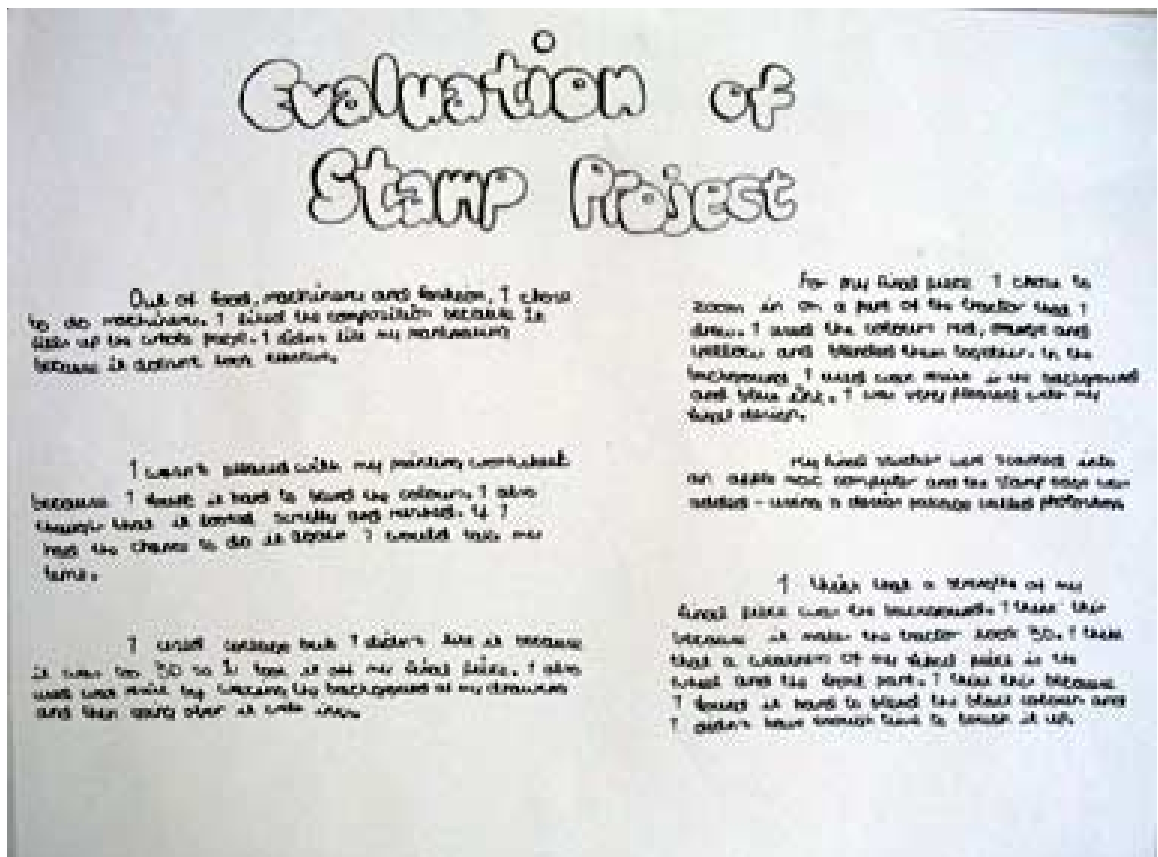 Evaluation of
Stamp Project
Out of food, machinery and fashion, I chose
to do machinery. I liked the composition because it
fills up the whole page. I didn't like my
because it doesn't look
I wasn't pleased with my painting worksheet
because I found it hard to blend the colours. I also
though that it looked scruffy and rushed. If I
had the chance to do it again I would take my
time.
I used collage but I didn't like it because
it was too 3D so I took it off my final piece. I also
used wax resist by waxing the background of my drawing
and then going over it with ink.
For my final piece I chose to
zoom in on a part of the tractor that I
drew. I used the colours red, orange and
yellow and blended them together. In the
background I used wax resist in the background
and blue ink. I was very pleased with my
final design.
My final was scanned into
an apple mac computer and the stamp edge was
added - using a design package called photoshop
I think that a strength of my
final piece was the background. I think this
because it makes the tractor look 3D. I think
that a weakness of my final piece is the
wheel and the front part. I think this because
I found it hard to blend the black colour and
I didn't have enough time to finish it up.